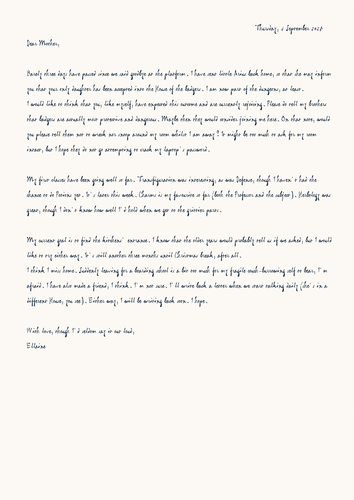 Thursday, 2 September 202
Dear Mother,
Barely three days have passed since we said goodbye at the platform. I have sent little Arius back home, so that she may inform
you that your only daughter has been accepted into the House of the badgers. I am now part of the dungeons, at least.
I would like to think that you, like myself, have expected this outcome and are currently rejoicing. Please do tell my brothers
that badgers are actually most protective and dangerous. Maybe then they would consider joining me here. On that note, would
you please tell them not to wreak any havoc around my room whilst I am away? It might be too much to ask for my room
intact, but I hope they do not go attempting to crack my laptop's password.
My first classes have been going well so far. Transfiguration was interesting, as was Defense, though I haven't had the
chance to do Potions yet. It's later this week. Charms is my favourite so far (both the Professor and the subject). Herbology was
great, though I don't know how well I'd hold when we get to the grosser parts.
My current goal is to find the kitchens' entrance. I know that the older years would probably tell us if we asked, but I would
like to try either way. It's still another three months until Christmas break, after all.
I think I miss home. Suddenly leaving for a boarding school is a bit too much for my fragile self to bear, I'm
afraid. I have also made a friend, I think. I'm not sure. I'll write back a letter when we start talking daily (she's in a
different House, you see). Either way, I will be writing back soon. I hope.
With love, though I'd seldom say it out loud,